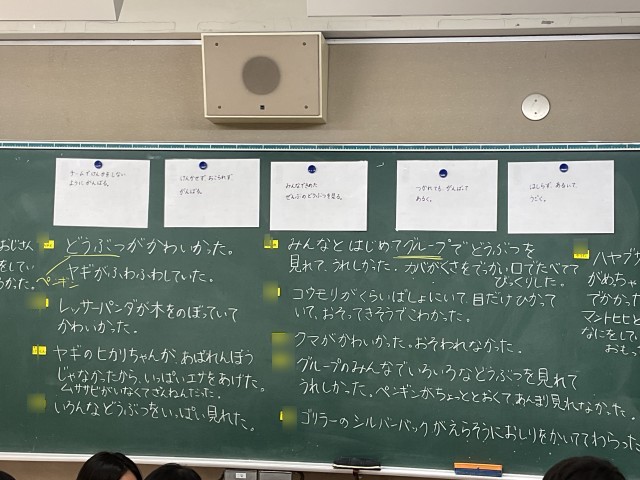 チームでけんかをしない
ようにがんばる。
けんかせず、おこらず、
がんばる。
みんなできめた
ぜんぶのどうぶつを見る。
つかれても、がんばって
あるく。
はしらず、あるいて、
うごく。
おじさん
をしてい
かった。
どうぶつがかわいかった。
ペンギン
ヤギがふわふわしていた。
レッサーパンダが木をのぼっていて
かわいかった。
ヤギのヒカリちゃんが、あばれんぼう
じゃなかったから、いっぱいエサをあげた。
ムササビがいなくてざんねんだった。
いろんなどうぶつをいっぱい見れた。
みんなとはじめてグループでどうぶつを
見れて、うれしかった。カバがくさをでっかい口でたべてて
びっくりした。
コウモリがくらいばしょにいて、目だけひかって
いて、おそってきそうでこわかった。
クマがかわいかった。おそわれなかった。
グループのみんなでいろいろなどうぶつを見れて
うれしかった。ペンギンがちょっととおくてあんまり見れなかった。
ゴリラーのシルバーバックがえらそうにおしりをかいててわらった
ハヤブサ
がめちゃ
でかかっ
マントヒヒと
なにをして
おもっ